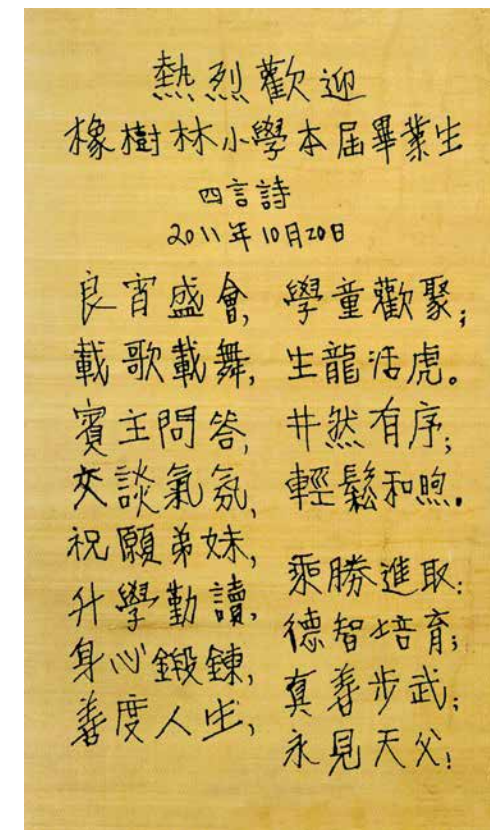 熱烈歡迎
橡樹林小學本屆畢業生
四言詩
2011年10月20日
良宵盛會, 學童歡聚;
載歌載舞, 生龍活虎。
賓主問答, 井然有序;
交談氣氛, 輕鬆和煦。
祝願弟妹, 乘勝進取:
升學勤讀, 德智培育;
身心鍛鍊, 真善步武;
善度人生, 永見天父!